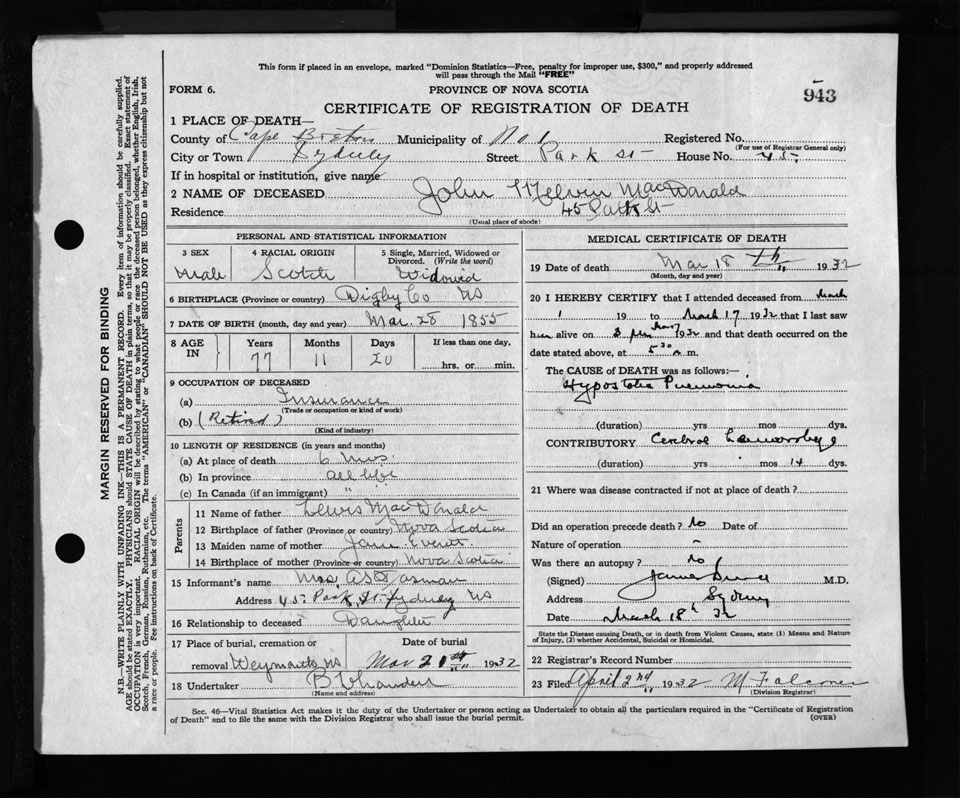 This form if placed in an envelope, marked "Dominion Statistics—Free, penalty for improper use, $300," and properly addressed
will pass through the Mail "FREE"
FORM 6.
PROVINCE OF NOVA SCOTIA
943
CERTIFICATE OF REGISTRATION OF DEATH
1 PLACE OF DEATH—
County of Cape Breton Municipality of No 1 Registered No.
(For use of Registrar General only)
City or Town Sydney Street Park St House No. 45
If in hospital or institution, give name
2 NAME OF DECEASED John Melvin MacDonald
Residence 45 Park St
(Usual place of abode)
PERSONAL AND STATISTICAL INFORMATION
3 SEX 4 RACIAL ORIGIN 5 Single, Married, Widowed or
Divorced. (Write the word)
Male Scotch Widowed
6 BIRTHPLACE (Province or country) Digby Co NS
7 DATE OF BIRTH (month, day and year) Mar. 28 1855
8 AGE IN Years Months Days If less than one day,
77 11 20 hrs. or min.
9 OCCUPATION OF DECEASED
(a) Insurance
(Trade or occupation or kind of work)
(b) (Retired)
(Kind of industry)
10 LENGTH OF RESIDENCE (in years and months)
(a) At place of death 6
(b) In province all life
(c) In Canada (if an immigrant) "
Parents
11 Name of father Lewis MacDonald
12 Birthplace of father (Province or country) Nova Scotia
13 Maiden name of mother Jane Everett
14 Birthplace of mother (Province or country) Nova Scotia
15 Informant's name Mrs.
Address 45 Park St. Sydney NS
16 Relationship to deceased Daughter
17 Place of burial, cremation or Date of burial
removal Weymouth NS Mar 21st 1932
18 Undertaker
(Name and address)
MEDICAL CERTIFICATE OF DEATH
19 Date of death Mar 18th 1932
(Month, day and year)
20 I HEREBY CERTIFY that I attended deceased from March
1 19 to March 17 1932 that I last saw
him alive on 1932 and that death occurred on the
date stated above, at 5 30 a m.
The CAUSE of DEATH was as follows:—
Hypostatic Pneumonia
(duration) yrs mos dys.
CONTRIBUTORY Cerebral Hemorrhage
(duration) yrs mos 14 dys.
21 Where was disease contracted if not at place of death?
Did an operation precede death? no Date of
Nature of operation —
Was there an autopsy? no
(Signed) James M.D.
Address Sydney
Date March 18th 32
State the Disease causing Death, or in death from Violent Causes, state (1) Means and Nature
of Injury, (2) whether Accidental, Suicidal or Homicidal.
22 Registrar's Record Number
23 Filed April 2nd 1932 M Falconer
(Division Registrar)
Sec. 46—Vital Statistics Act makes it the duty of the Undertaker or person acting as Undertaker to obtain all the particulars required in the "Certificate of Registration
of Death" and to file the same with the Division Registrar who shall issue the burial permit.
(OVER)
MARGIN RESERVED FOR BINDING
N.B.—WRITE PLAINLY WITH UNFADING INK—THIS IS A PERMANENT RECORD. Every item of information should be carefully supplied.
AGE should be stated EXACTLY. PHYSICIANS should STATE CAUSE OF DEATH in plain terms, so that it may be properly classified. Exact statement of
OCCUPATION is very important. RACIAL ORIGIN will be described by stating to what people or race the deceased person belonged, whether English, Irish,
Scotch, French, German, Russian, Ruthenian, etc. The terms "AMERICAN" or "CANADIAN" SHOULD NOT BE USED as they express citizenship but not
a race or people. See instructions on back of Certificate.